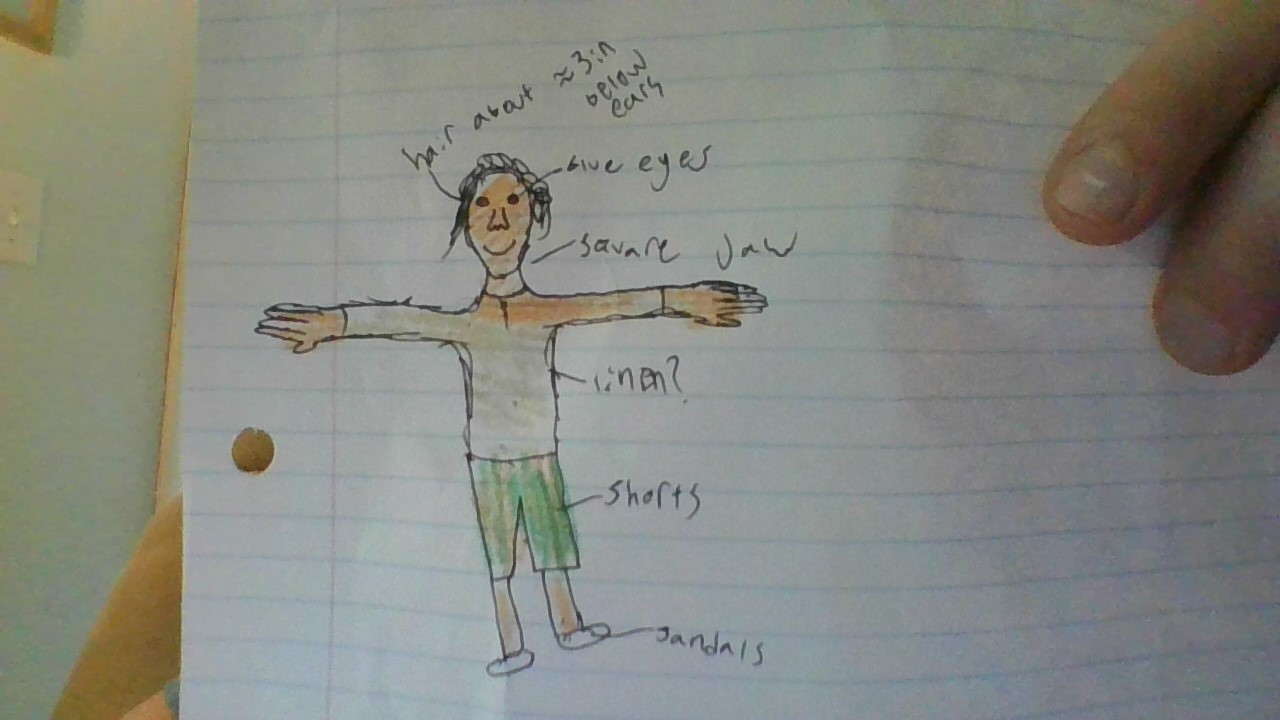 hair about ≈3in
below
ears
blue eyes
square jaw
linen?
shorts
sandals